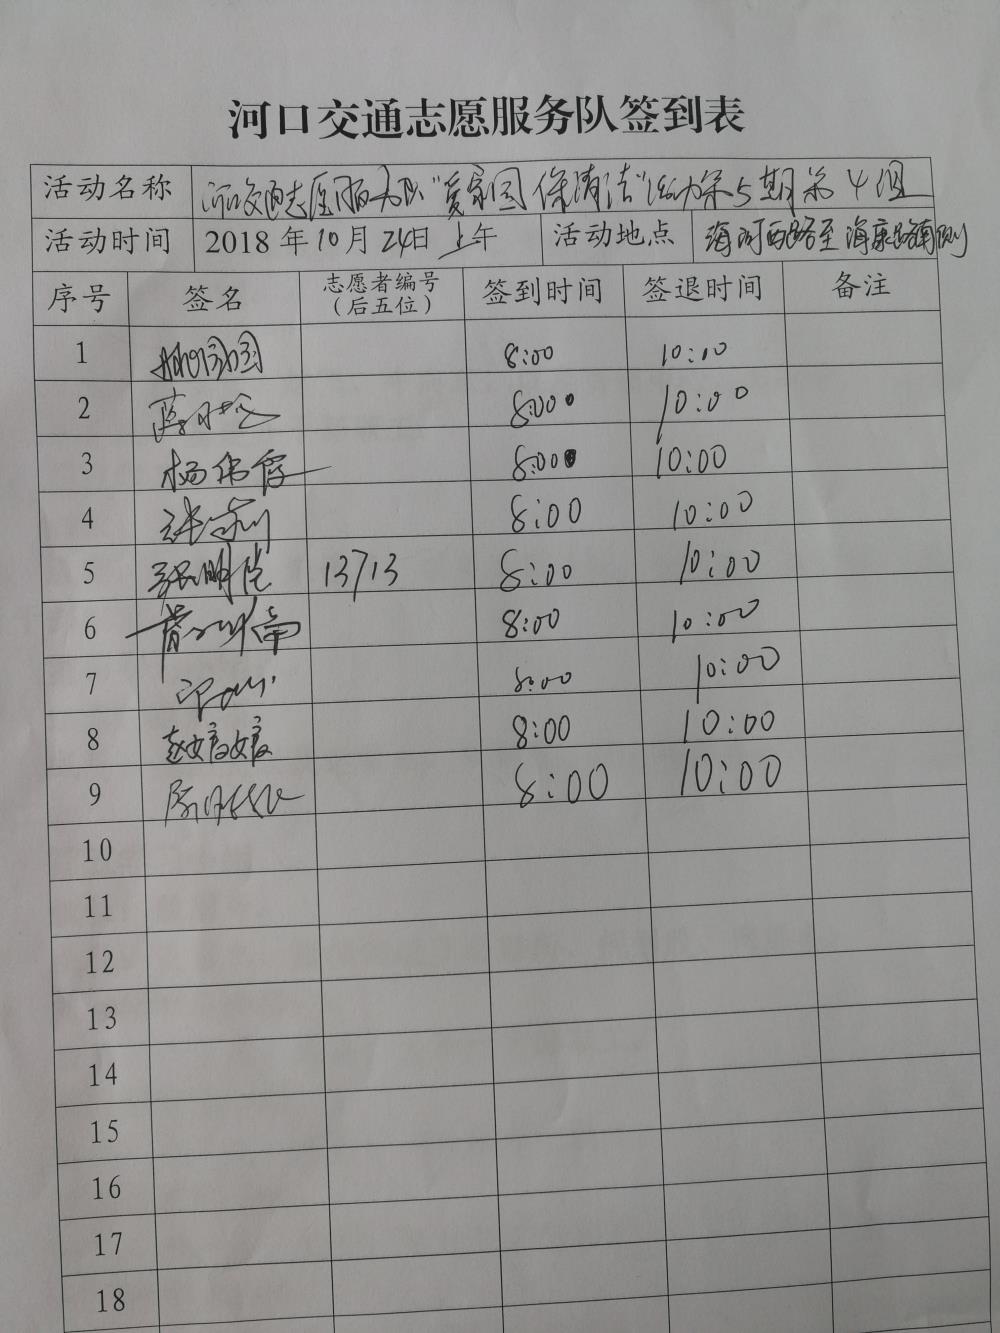 河口交通志愿服务队签到表
活动名称 河口交通志愿服务队"爱家园 保清洁"活动第5期第4组
活动时间 2018年10月24日上午 活动地点 海河西路至海康路南侧
序号 签名 志愿者编号(后五位) 签到时间 签退时间 备注
1 8:00 10:10
2 8:00 10:00
3 杨伟霞 8:00 10:00
4 8:00 10:00
5 张明 13713 8:00 10:00
6 8:00 10:00
7 8:00 10:00
8 赵媛媛 8:00 10:00
9 8:00 10:00
10
11
12
13
14
15
16
17
18